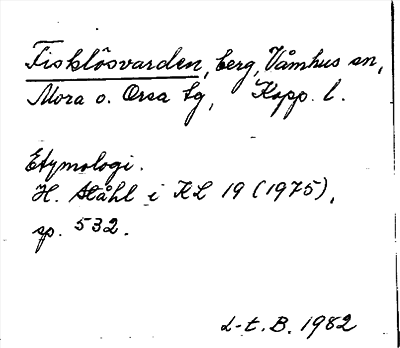 Fisklösvarden, berg, Våmhus sn,
Mora o. Orsa tg, Kopp. l.
Etymologi.
H. Ståhl i KL 19 (1975),
sp. 532.
L-t. B. 1982